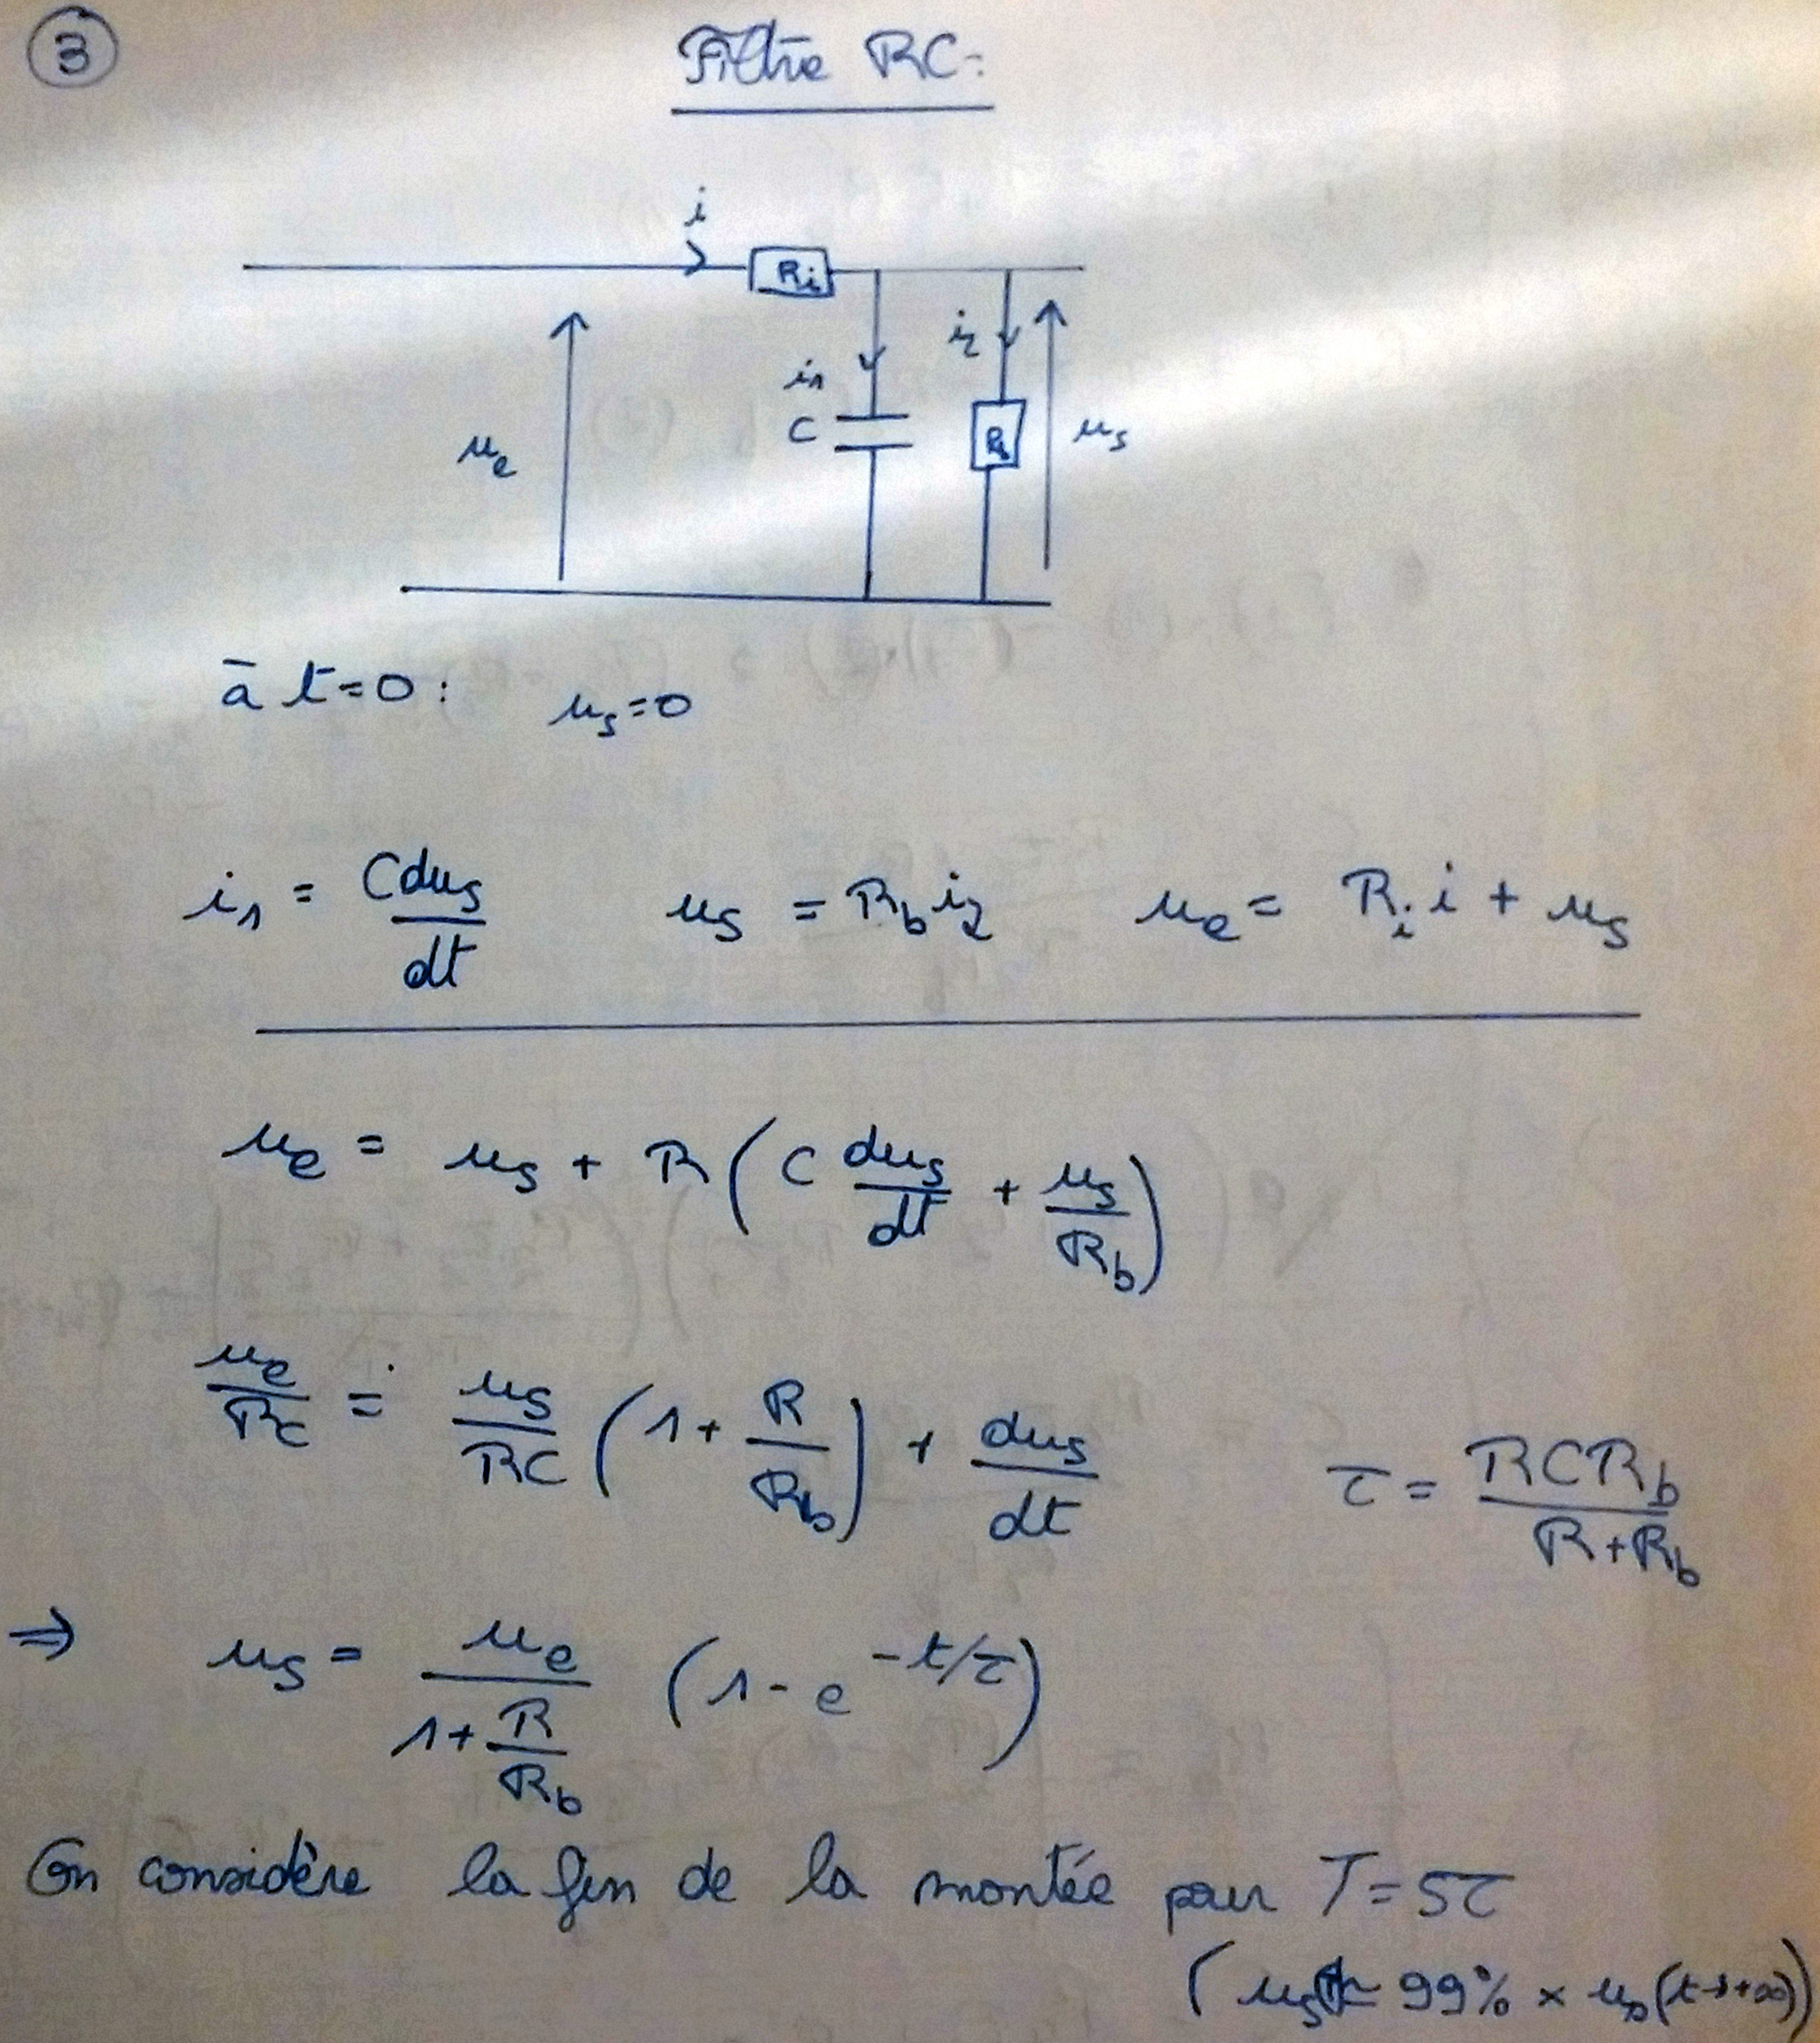 3
Filtre RC:
i
Ri
i1
i2
C
Rb
ue
us
à t=0: us=0
i1 = Cdus/dt us = Rb i2 ue = Ri i + us
ue = us + R(C dus/dt + us/Rb)
ue/RC = us/RC (1 + R/Rb) + dus/dt τ = RCRb/R+Rb
⇒ us = ue/1+R/Rb (1 - e^-t/τ)
On considère la fin de la montée pour T=5τ
99% × us(t→+∞))